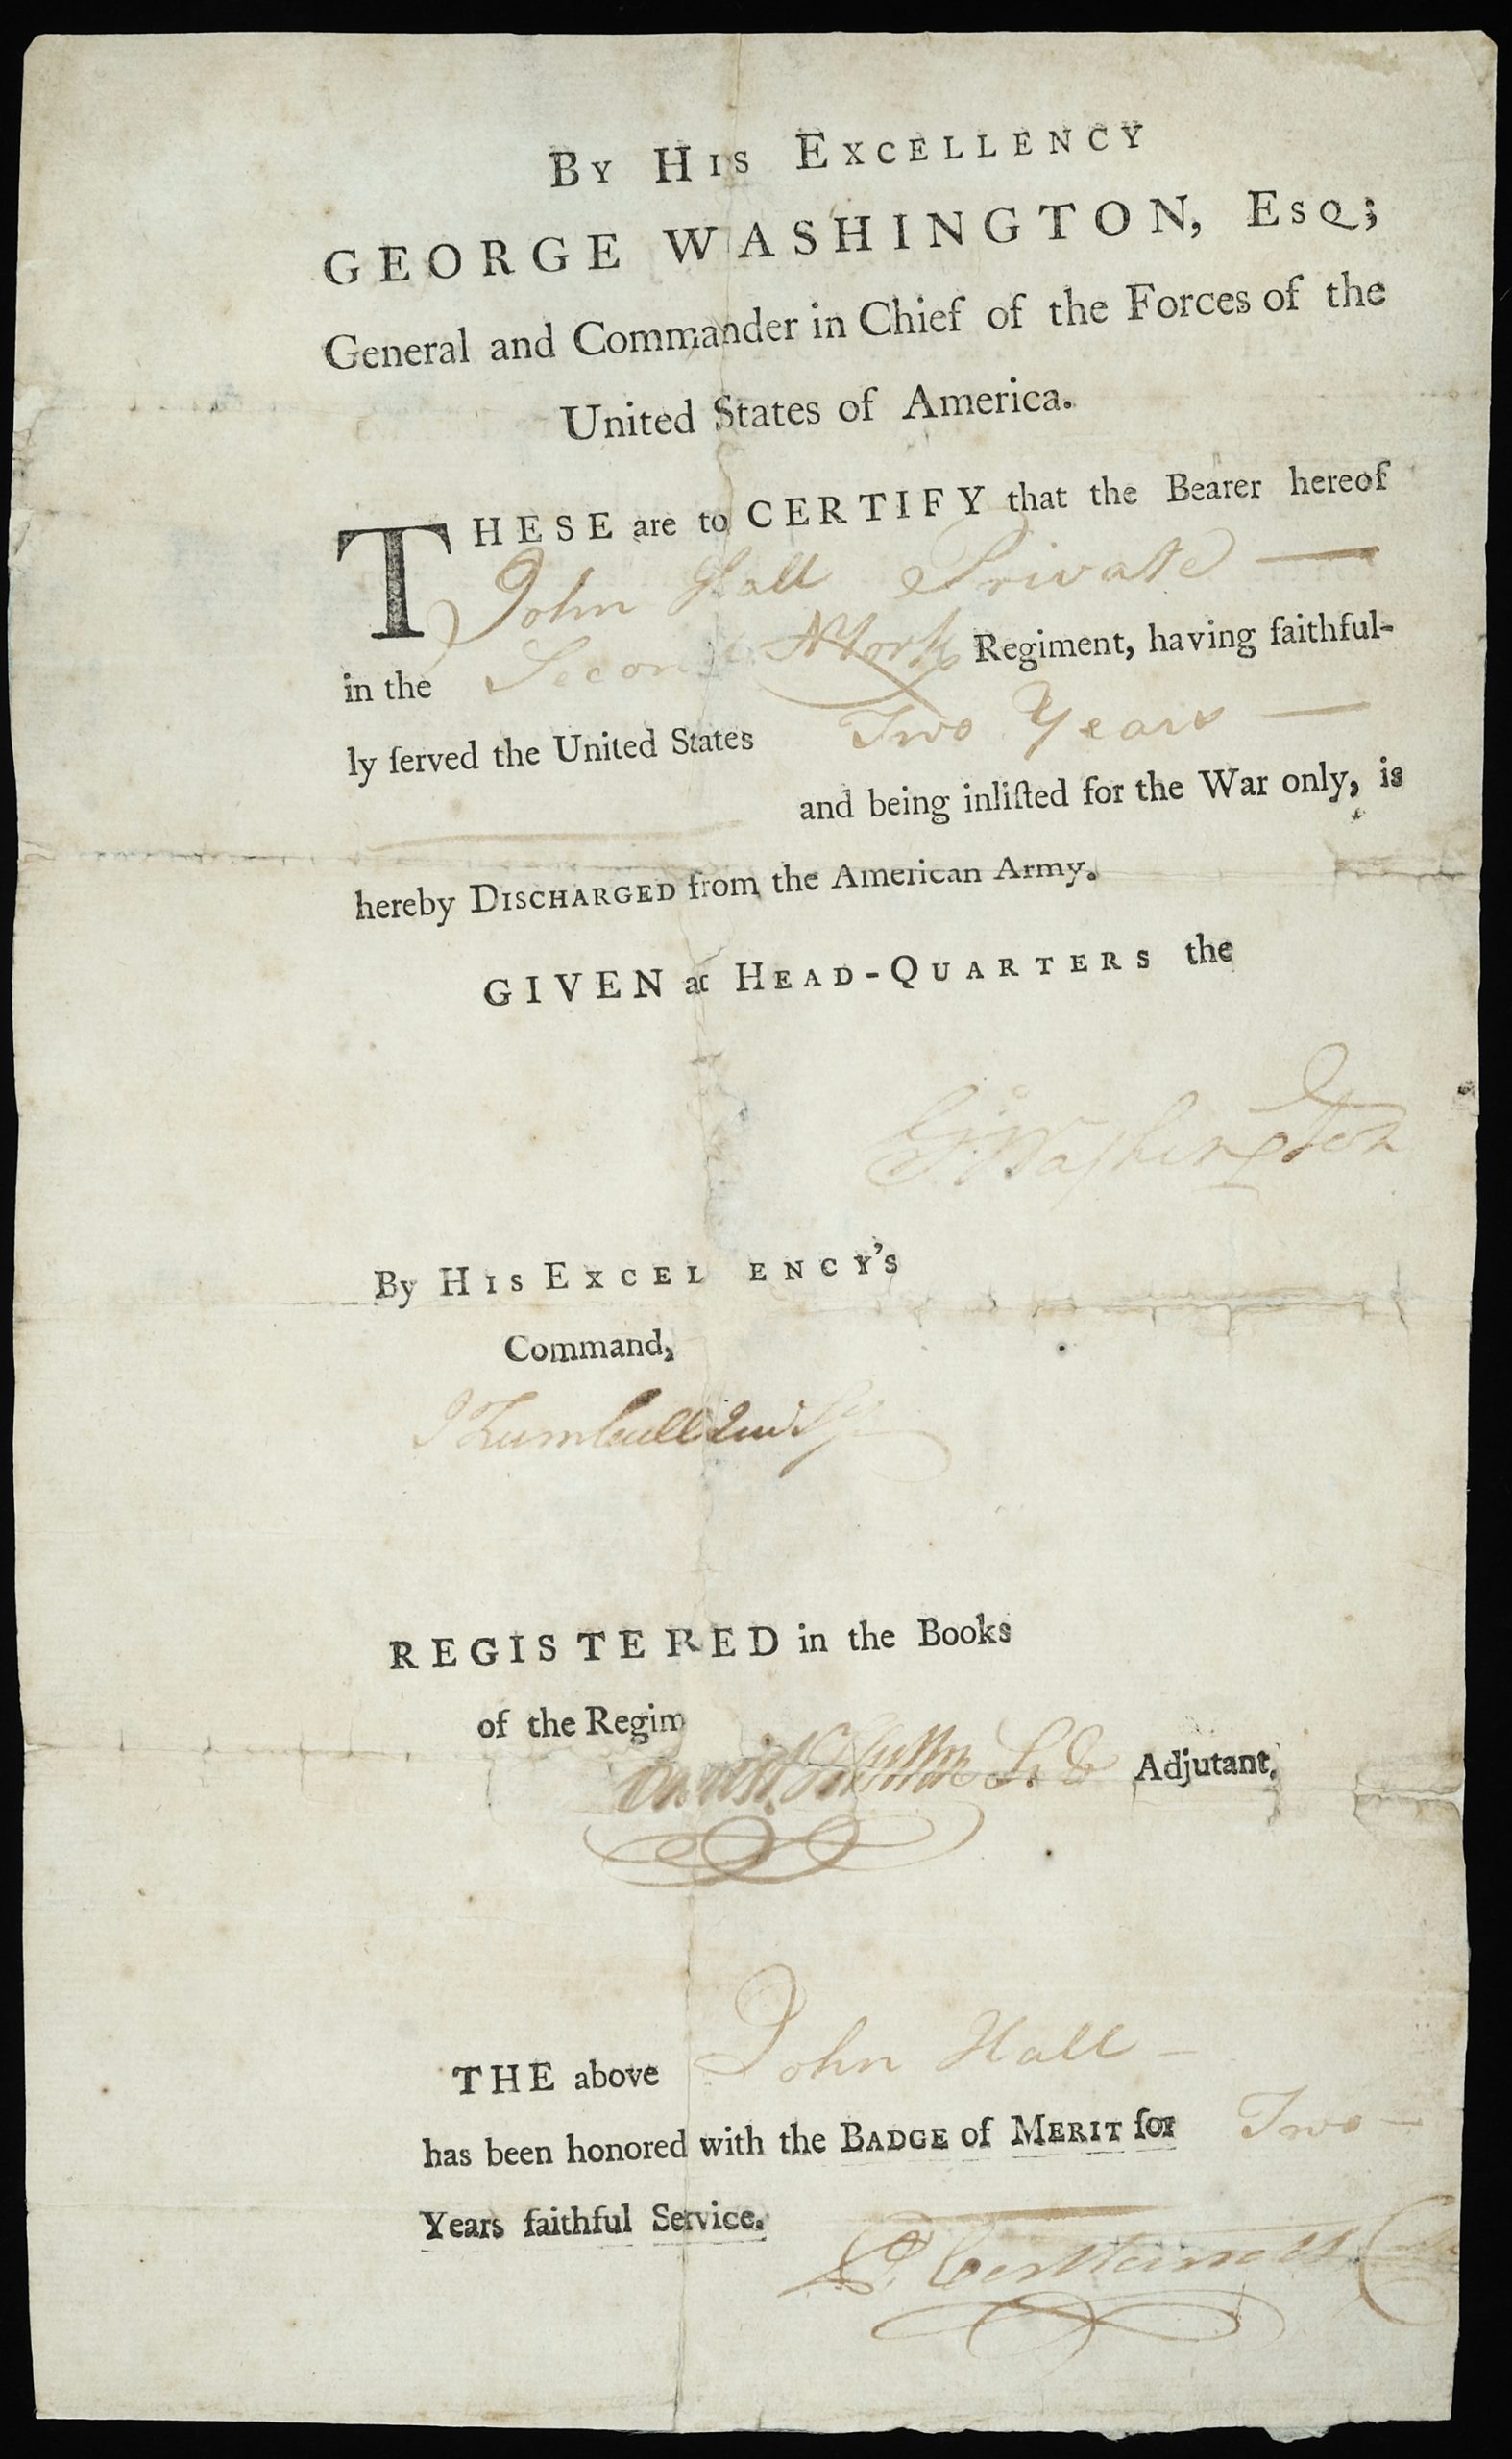 By His Excellency
GEORGE WASHINGTON, Esq;
General and Commander in Chief of the Forces of the
United States of America.
THESE are to CERTIFY that the Bearer hereof
John Hall Private —
in the Second NYork Regiment, having faithful-
ly ſerved the United States Two Years —
and being inliſted for the War only, is
hereby Discharged from the American Army.
GIVEN at Head-Quarters the
G:Washington
By His Excel ency's
Command,
JTrumbull Junr Sy
REGISTERED in the Books
of the Regim
Adjutant,
THE above John Hall —
has been honored with the Badge of Merit for Two —
Years faithful Service.
P. Cortlandt